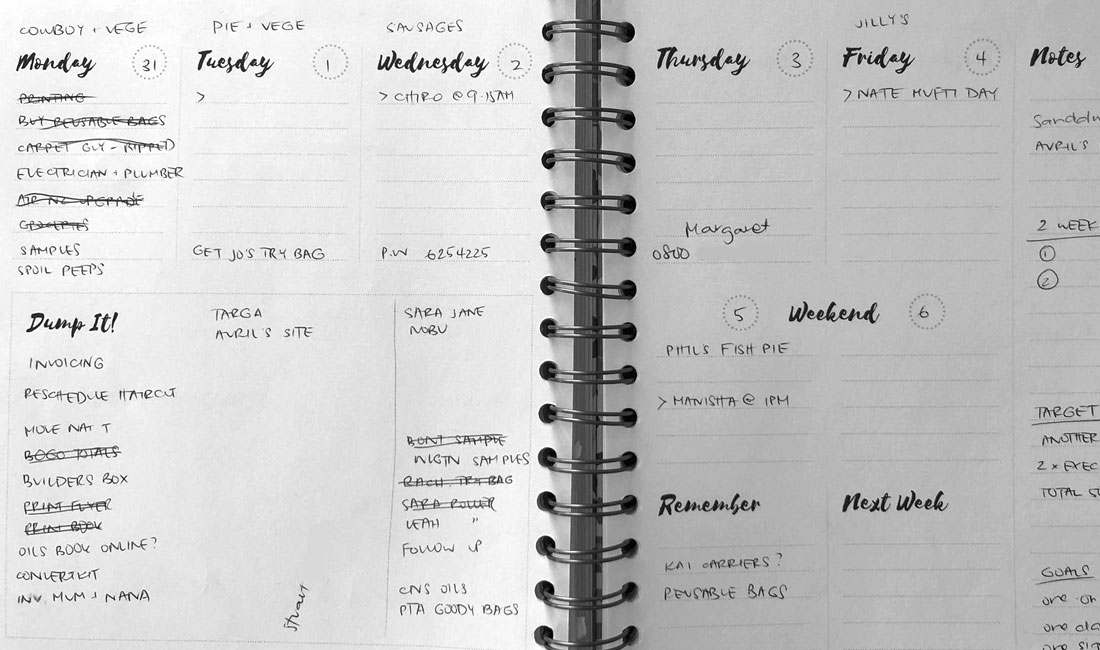 COWBOY + VEGE
Monday 31
PRINTING
BUY REUSABLE BAGS
CARPET GUY - RIPPED
ELECTRICIAN + PLUMBER
AIR NZ UPGRADE
GROCERIES
SAMPLES
SPOIL PEEPS
PIE + VEGE
Tuesday 1
>
GET JO'S TRY BAG
SAUSAGES
Wednesday 2
> CHIRO @ 9.15AM
P.W 6254225
Dump It!
INVOICING
RESCHEDULE HAIRCUT
MOVE NAT T
BOGO TOTALS
BUILDERS BOX
PRINT FLYER
PRINT BOOK
OILS BOOK ONLINE?
CONVERTKIT
INV MUM + NANA
TARGA
AVRIL'S SITE
Stuart
SARA JANE
NOBU
DONT SAMPLE
WLGTN SAMPLES
RACH TRY BAG
SARA ROLLER
LEAH "
FOLLOW UP
CNS OILS
PTA GOODY BAGS
Thursday 3
Margaret
0800
JILLY'S
Friday 4
> NATE MUFTI DAY
5 Weekend 6
PHIL'S FISH PIE
> MANISHA @ 1PM
Remember
KAI CARRIERS?
REUSABLE BAGS
Next Week
Notes
AVRIL'S
2 WEEK
1
2
TARGET
ANOTHER
2 x EXEC
TOTAL
GOALS
one on
one
one